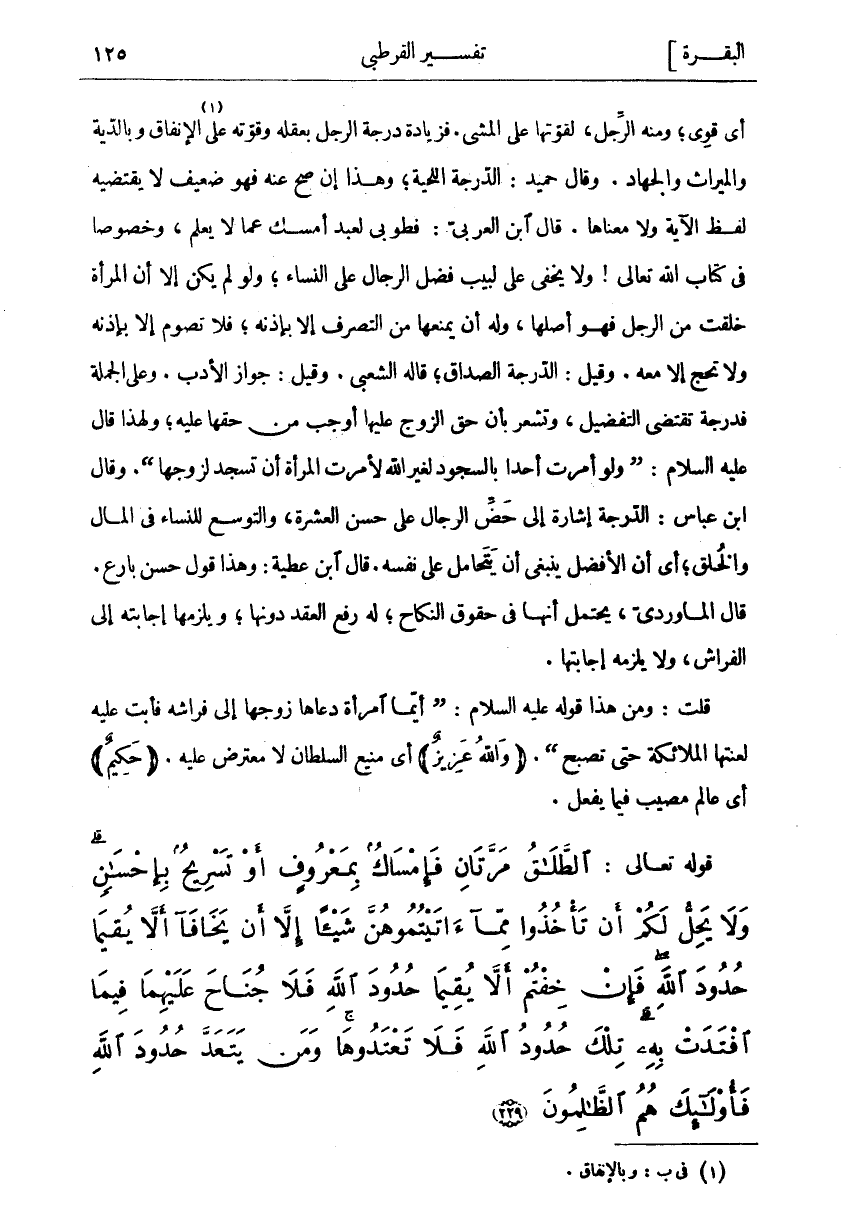 البقرة ] تفسير القرطبى ١٢٥
أى قوى؛ ومنه الرِّجل، لقوّتها على المشى. فزيادة درجة الرجل بعقله وقوّته على (١) الإنفاق وبالدّية
والميراث والجهاد . وقال حميد : الدّرجة اللحية؛ وهذا إن صح عنه فهو ضعيف لا يقتضيه
لفظ الآية ولا معناها . قال ٱبن العربىّ : فطوبى لعبد أمسك عما لا يعلم ، وخصوصا
فى كتاب الله تعالى ! ولا يخفى على لبيب فضل الرجال على النساء ؛ ولو لم يكن إلا أن المرأة
خلقت من الرجل فهو أصلها ، وله أن يمنعها من التصرف إلا بإذنه ؛ فلا تصوم إلا بإذنه
ولا تحج إلا معه . وقيل : الدّرجة الصداق؛ قاله الشعبى . وقيل : جواز الأدب . وعلى الجملة
فدرجة تقتضى التفضيل ، وتشعر بأن حق الزوج عليها أوجب من حقها عليه؛ ولهذا قال
عليه السلام : ” ولو أمرت أحدا بالسجود لغير الله لأمرت المرأة أن تسجد لزوجها “. وقال
ابن عباس : الدّرجة إشارة إلى حَضّ الرجال على حسن العشرة، والتوسع للنساء فى المال
والخُلق؛ أى أن الأفضل ينبغى أن يَتَحامل على نفسه. قال ٱبن عطية : وهذا قول حسن بارع .
قال الماوردىّ ، يحتمل أنها فى حقوق النكاح ؛ له رفع العقد دونها ؛ ويلزمها إجابته إلى
الفراش، ولا يلزمه إجابتها .
قلت : ومن هذا قوله عليه السلام : ” أيّما ٱمرأة دعاها زوجها إلى فراشه فأبت عليه
لعنتها الملائكة حتى تصبح “. ﴿ وَاللهُ عَزِيزٌ ﴾ أى منيع السلطان لا معترض عليه . ﴿ حَكِيمٌ ﴾
أى عالم مصيب فيما يفعل .
قوله تعالى : ٱلطَّلَٰقُ مَرَّتَانِ فَإِمْسَاكُۢ بِمَعْرُوفٍ أَوْ تَسْرِيحُۢ بِإِحْسَٰنٍۗ
وَلَا يَحِلُّ لَكُمْ أَن تَأْخُذُوا مِمَّآ ءَاتَيْتُمُوهُنَّ شَيْـًٔا إِلَّآ أَن يَخَافَآ أَلَّا يُقِيمَا
حُدُودَ ٱللَّهِۖ فَإِنْ خِفْتُمْ أَلَّا يُقِيمَا حُدُودَ ٱللَّهِ فَلَا جُنَاحَ عَلَيْهِمَا فِيمَا
ٱفْتَدَتْ بِهِۦۗ تِلْكَ حُدُودُ ٱللَّهِ فَلَا تَعْتَدُوهَاۚ وَمَن يَتَعَدَّ حُدُودَ ٱللَّهِ
فَأُوْلَٰٓئِكَ هُمُ ٱلظَّٰلِمُونَ ﴿٢٢٩﴾
(١) فى ب : وبالإنفاق .